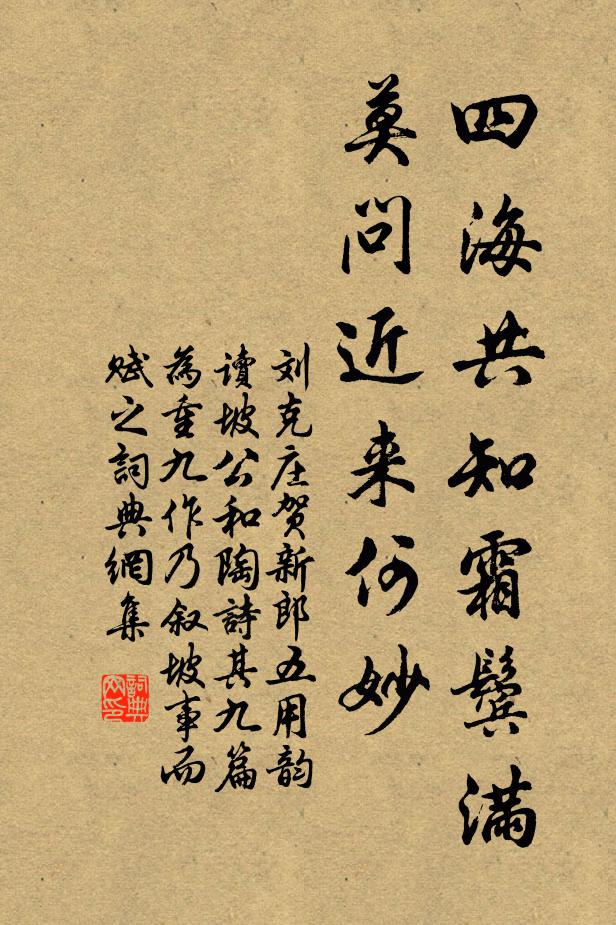 四海共知霜鬓满
莫问近来何妙
刘克庄贺新郎五用韵
读坡公和陶诗其九篇
为重九作乃叙坡事而
赋之词典网集
词典